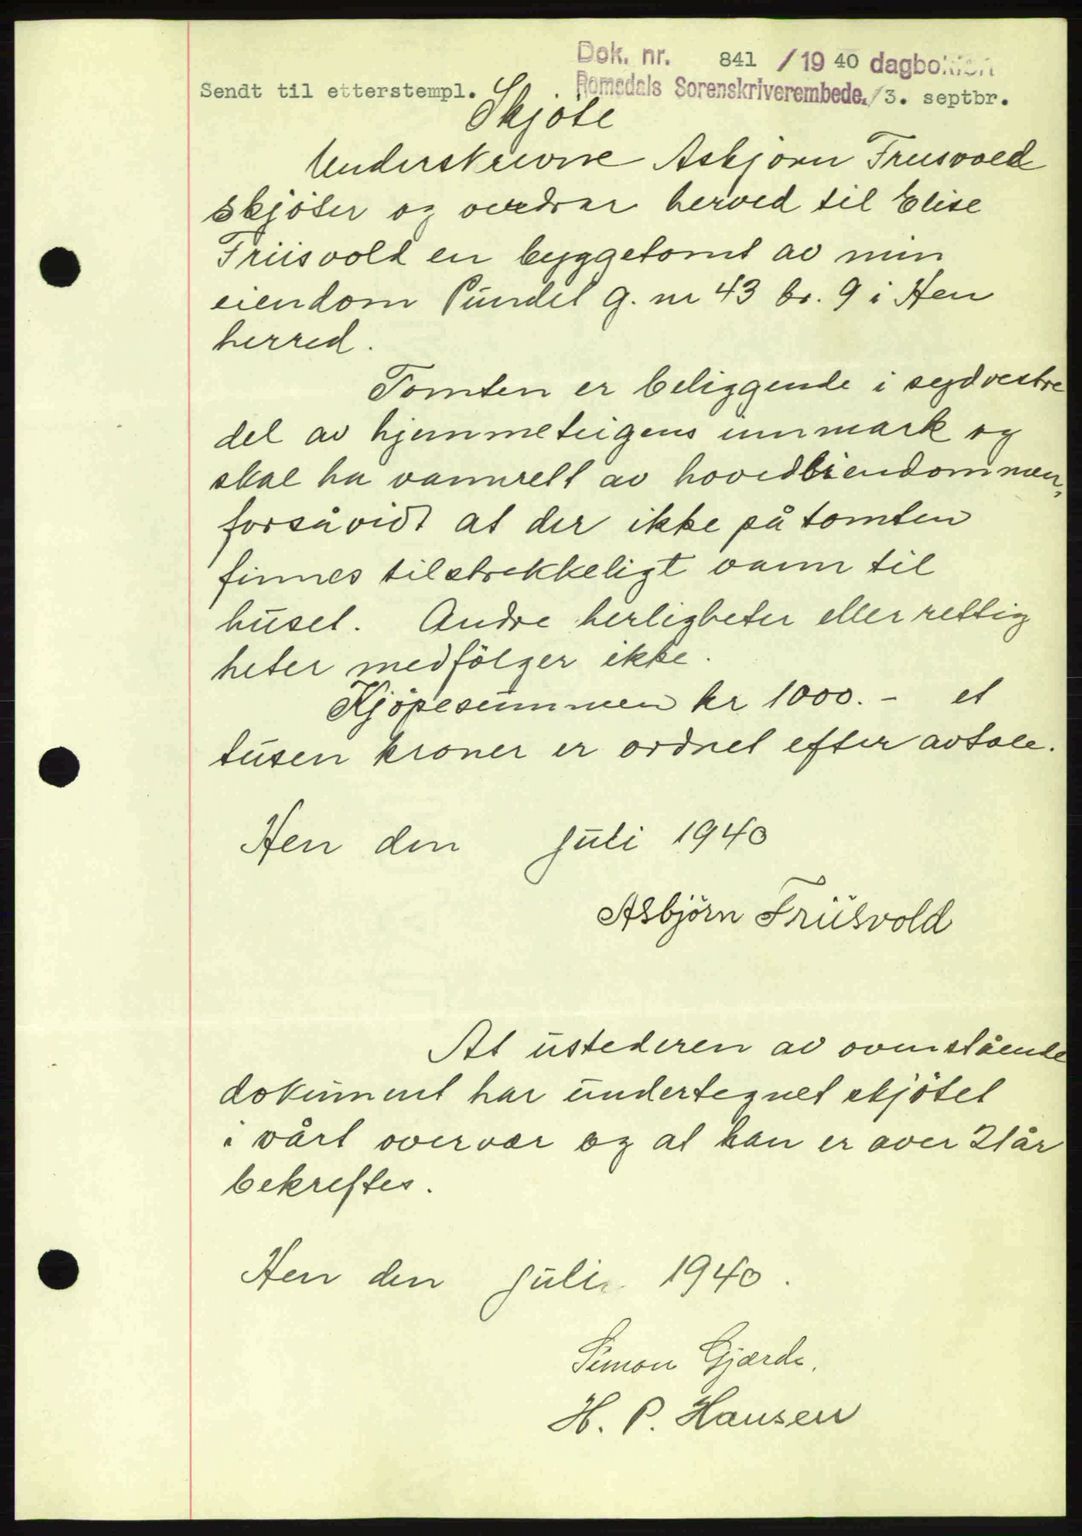 Dok. nr. 841 / 19 40 dagboken
Sendt til etterstempl. Romsdals Sorenskriverembede. / 3. septbr.
Skjöte
Underskrevne Asbjørn Friisvold
skjöter og overdrar herved til Elise
Friisvold en byggetomt av min
eiendom g. nr 43 br. 9 i Hen
herred.
Tomten er beliggende i sydvestre
del av hjemmeteigens innmark og
skal ha vannrett av hovedbiendommen,
forsåvidt at der ikke på tomten
finnes tilstrekkeligt vann til
huset. Andre herligheter eller rettig
heter medfölger ikke.
Kjöpesummen kr 1000.- et
tusen kroner er ordnet efter avtale.
Hen den Juli 1940
Asbjörn Friisvold
At ustederen av ovenstående
dokument har undertegnet skjötet
i vårt overvær og at han er over 21 år
bekreftes.
Hen den Juli 1940.
Simon Gjærde.
H. P. Hansen